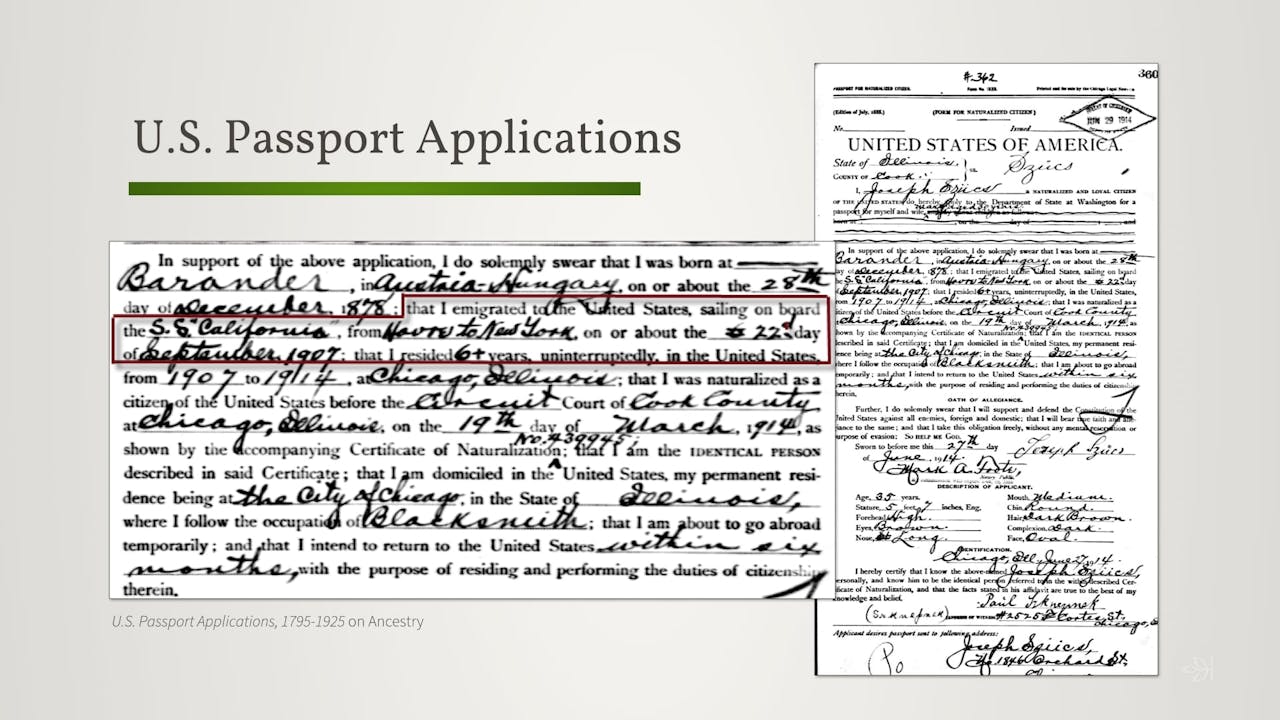 U.S. Passport Applications
In support of the above application, I do solemnly swear that I was born at
Barander, in Austria-Hungary, on or about the 28th
day of December, 1878; that I emigrated to the United States, sailing on board
the S.S. "California" from Havre to New York, on or about the 22 day
of September, 1907; that I resided 6+ years, uninterruptedly, in the United States,
from 1907 to 1914, at Chicago, Illinois; that I was naturalized as a
citizen of the United States before the Circuit Court of Cook County
at Chicago, Illinois, on the 19th day of March, 1914, as
No. 439945,
shown by the accompanying Certificate of Naturalization; that I am the IDENTICAL PERSON
described in said Certificate; that I am domiciled in the United States, my permanent resi-
dence being at the City of Chicago, in the State of Illinois,
where I follow the occupation of Blacksmith; that I am about to go abroad
temporarily; and that I intend to return to the United States within six
months, with the purpose of residing and performing the duties of citizenship
therein.
U.S. Passport Applications, 1795-1925 on Ancestry
#342
360
PASSPORT FOR NATURALIZED CITIZEN.
(Edition of July, 1888.) (FORM FOR NATURALIZED CITIZEN)
No. Issued
JUN 29 1914
UNITED STATES OF AMERICA.
State of Illinois, Szücs
COUNTY OF Cook
I, Joseph Szücs a NATURALIZED AND LOYAL CITIZEN
OF THE UNITED STATES do hereby apply to the Department of State at Washington for a
passport for myself and wife,
In support of the above application, I do solemnly swear that I was born at
Barander, in Austria-Hungary, on or about the 28th
day of December, 1878; that I emigrated to the United States, sailing on board
the S.S. "California" from Havre to New York, on or about the 22 day
of September, 1907; that I resided 6+ years, uninterruptedly, in the United States,
from 1907 to 1914, at Chicago, Illinois; that I was naturalized as a
citizen of the United States before the Circuit Court of Cook County
at Chicago, Illinois, on the 19th day of March, 1914, as
No. 439945
shown by the accompanying Certificate of Naturalization; that I am the IDENTICAL PERSON
described in said Certificate; that I am domiciled in the United States, my permanent resi-
dence being at the City of Chicago, in the State of Illinois,
where I follow the occupation of Blacksmith; that I am about to go abroad
temporarily; and that I intend to return to the United States within six
months, with the purpose of residing and performing the duties of citizenship
therein.
OATH OF ALLEGIANCE.
Further, I do solemnly swear that I will support and defend the Constitution of the
United States against all enemies, foreign and domestic; that I will bear true faith and alle-
giance to the same; and that I take this obligation freely, without any mental reservation or
purpose of evasion: SO HELP ME GOD.
Sworn to before me this 27th day Joseph Szücs
of June, 1914.
Mark A. Foote,
Notary Public
DESCRIPTION OF APPLICANT.
Age, 35 years. Mouth, Medium.
Stature, 5 feet 7 inches, Eng. Chin, Round.
Forehead, High. Hair, Dark Brown.
Eyes, Brown. Complexion, Dark.
Nose, Long. Face, Oval.
IDENTIFICATION.
Chicago, Ill. June 27, 1914.
I hereby certify that I know the above-named Joseph Szücs,
personally, and know him to be the identical person referred to in the within described Cer-
tificate of Naturalization, and that the facts stated in his affidavit are true to the best of my
knowledge and belief.
Paul
ADDRESS OF WITNESS #2525 Cortez St.
Chicago,
Applicant desires passport sent to following address:
Joseph Szücs,
1846 Orchard St.